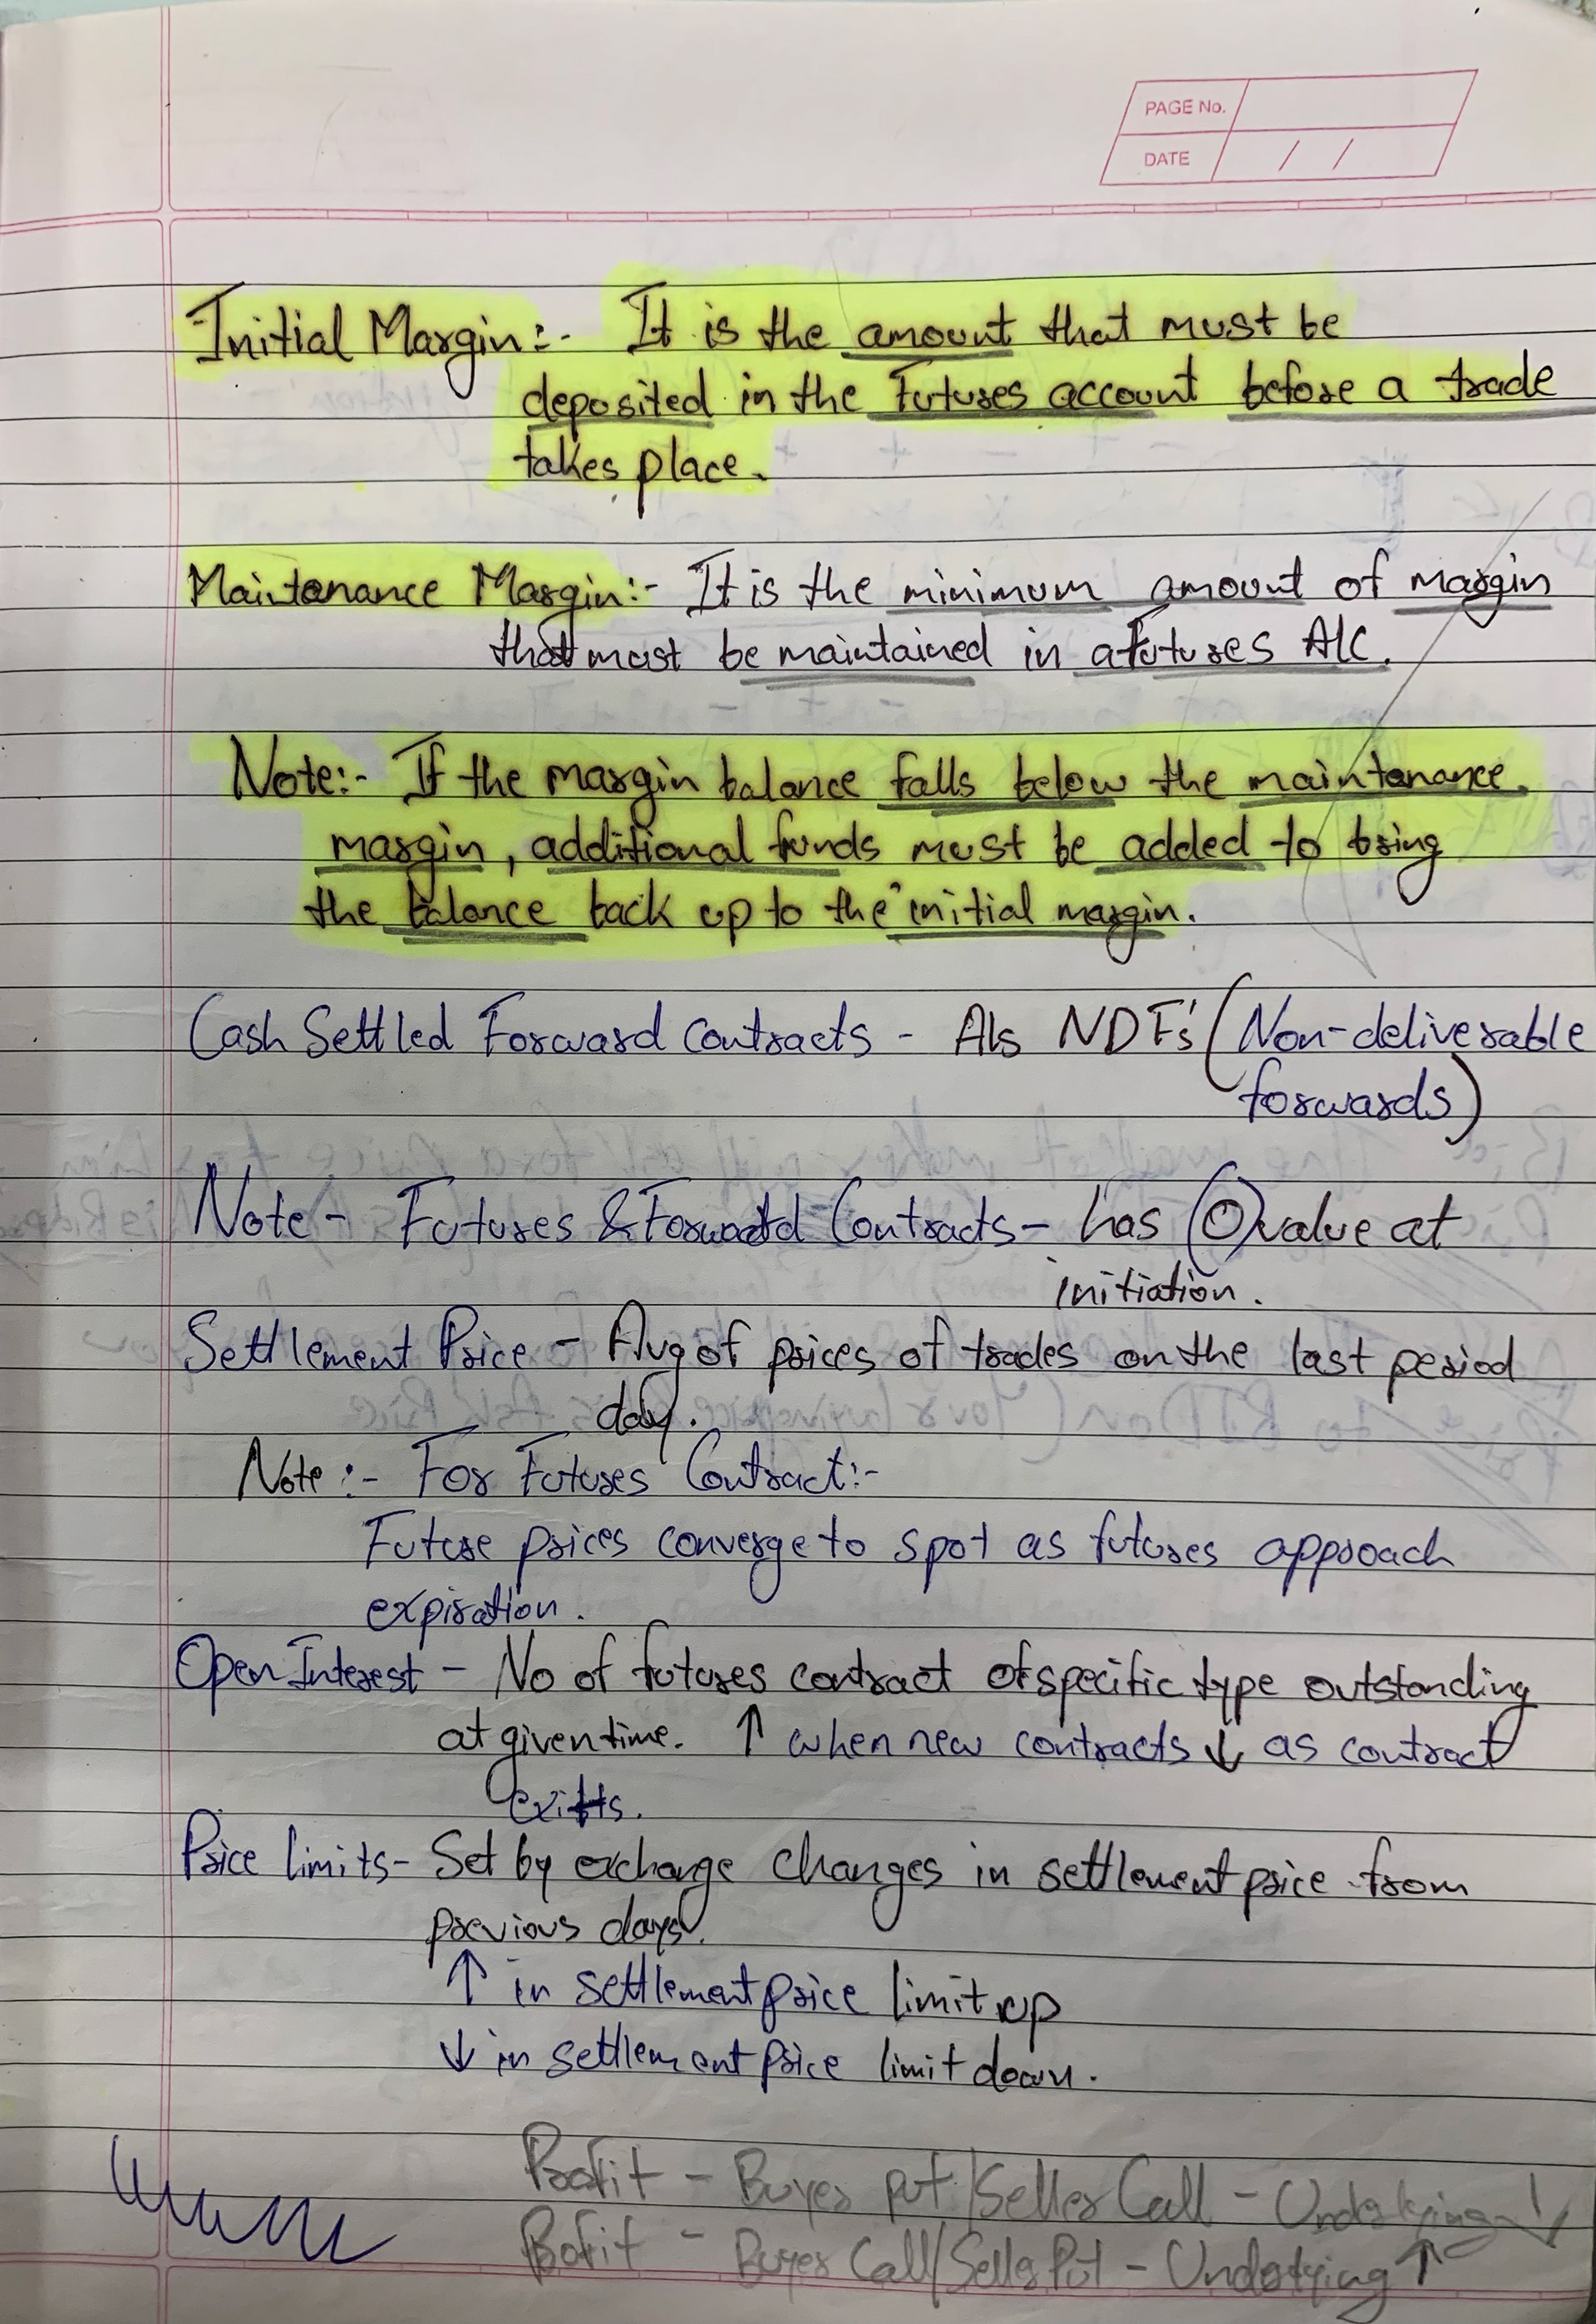 PAGE No.
DATE / /
Initial Margin:- It is the amount that must be
deposited in the Futures account before a trade
takes place.
Maintanance Margin:- It is the minimum amount of margin
that must be maintained in a Futures A/C.
Note:- If the margin balance falls below the maintanance
margin, additional funds must be added to bring
the balance back up to the initial margin.
Cash Settled Forward Contracts - Als NDF's (Non-deliverable
forwards)
Note - Futures & Forward Contracts - has (0) value at
initiation.
Settlement Price - Avg of prices of trades on the last period
day.
Note :- For Futures Contract:-
Future prices converge to spot as futures approach
expiration.
Open Interest - No of futures contract of specific type outstanding
at given time. ↑ when new contracts ↓ as contract
exits.
Price limits - Set by exchange changes in settlement price from
previous days.
↑ in settlement price limit up
↓ in settlement price limit down.
Profit - Buyer put/Seller Call - Underlying ↓
Profit - Buyer Call/Selle Put - Underlying ↑